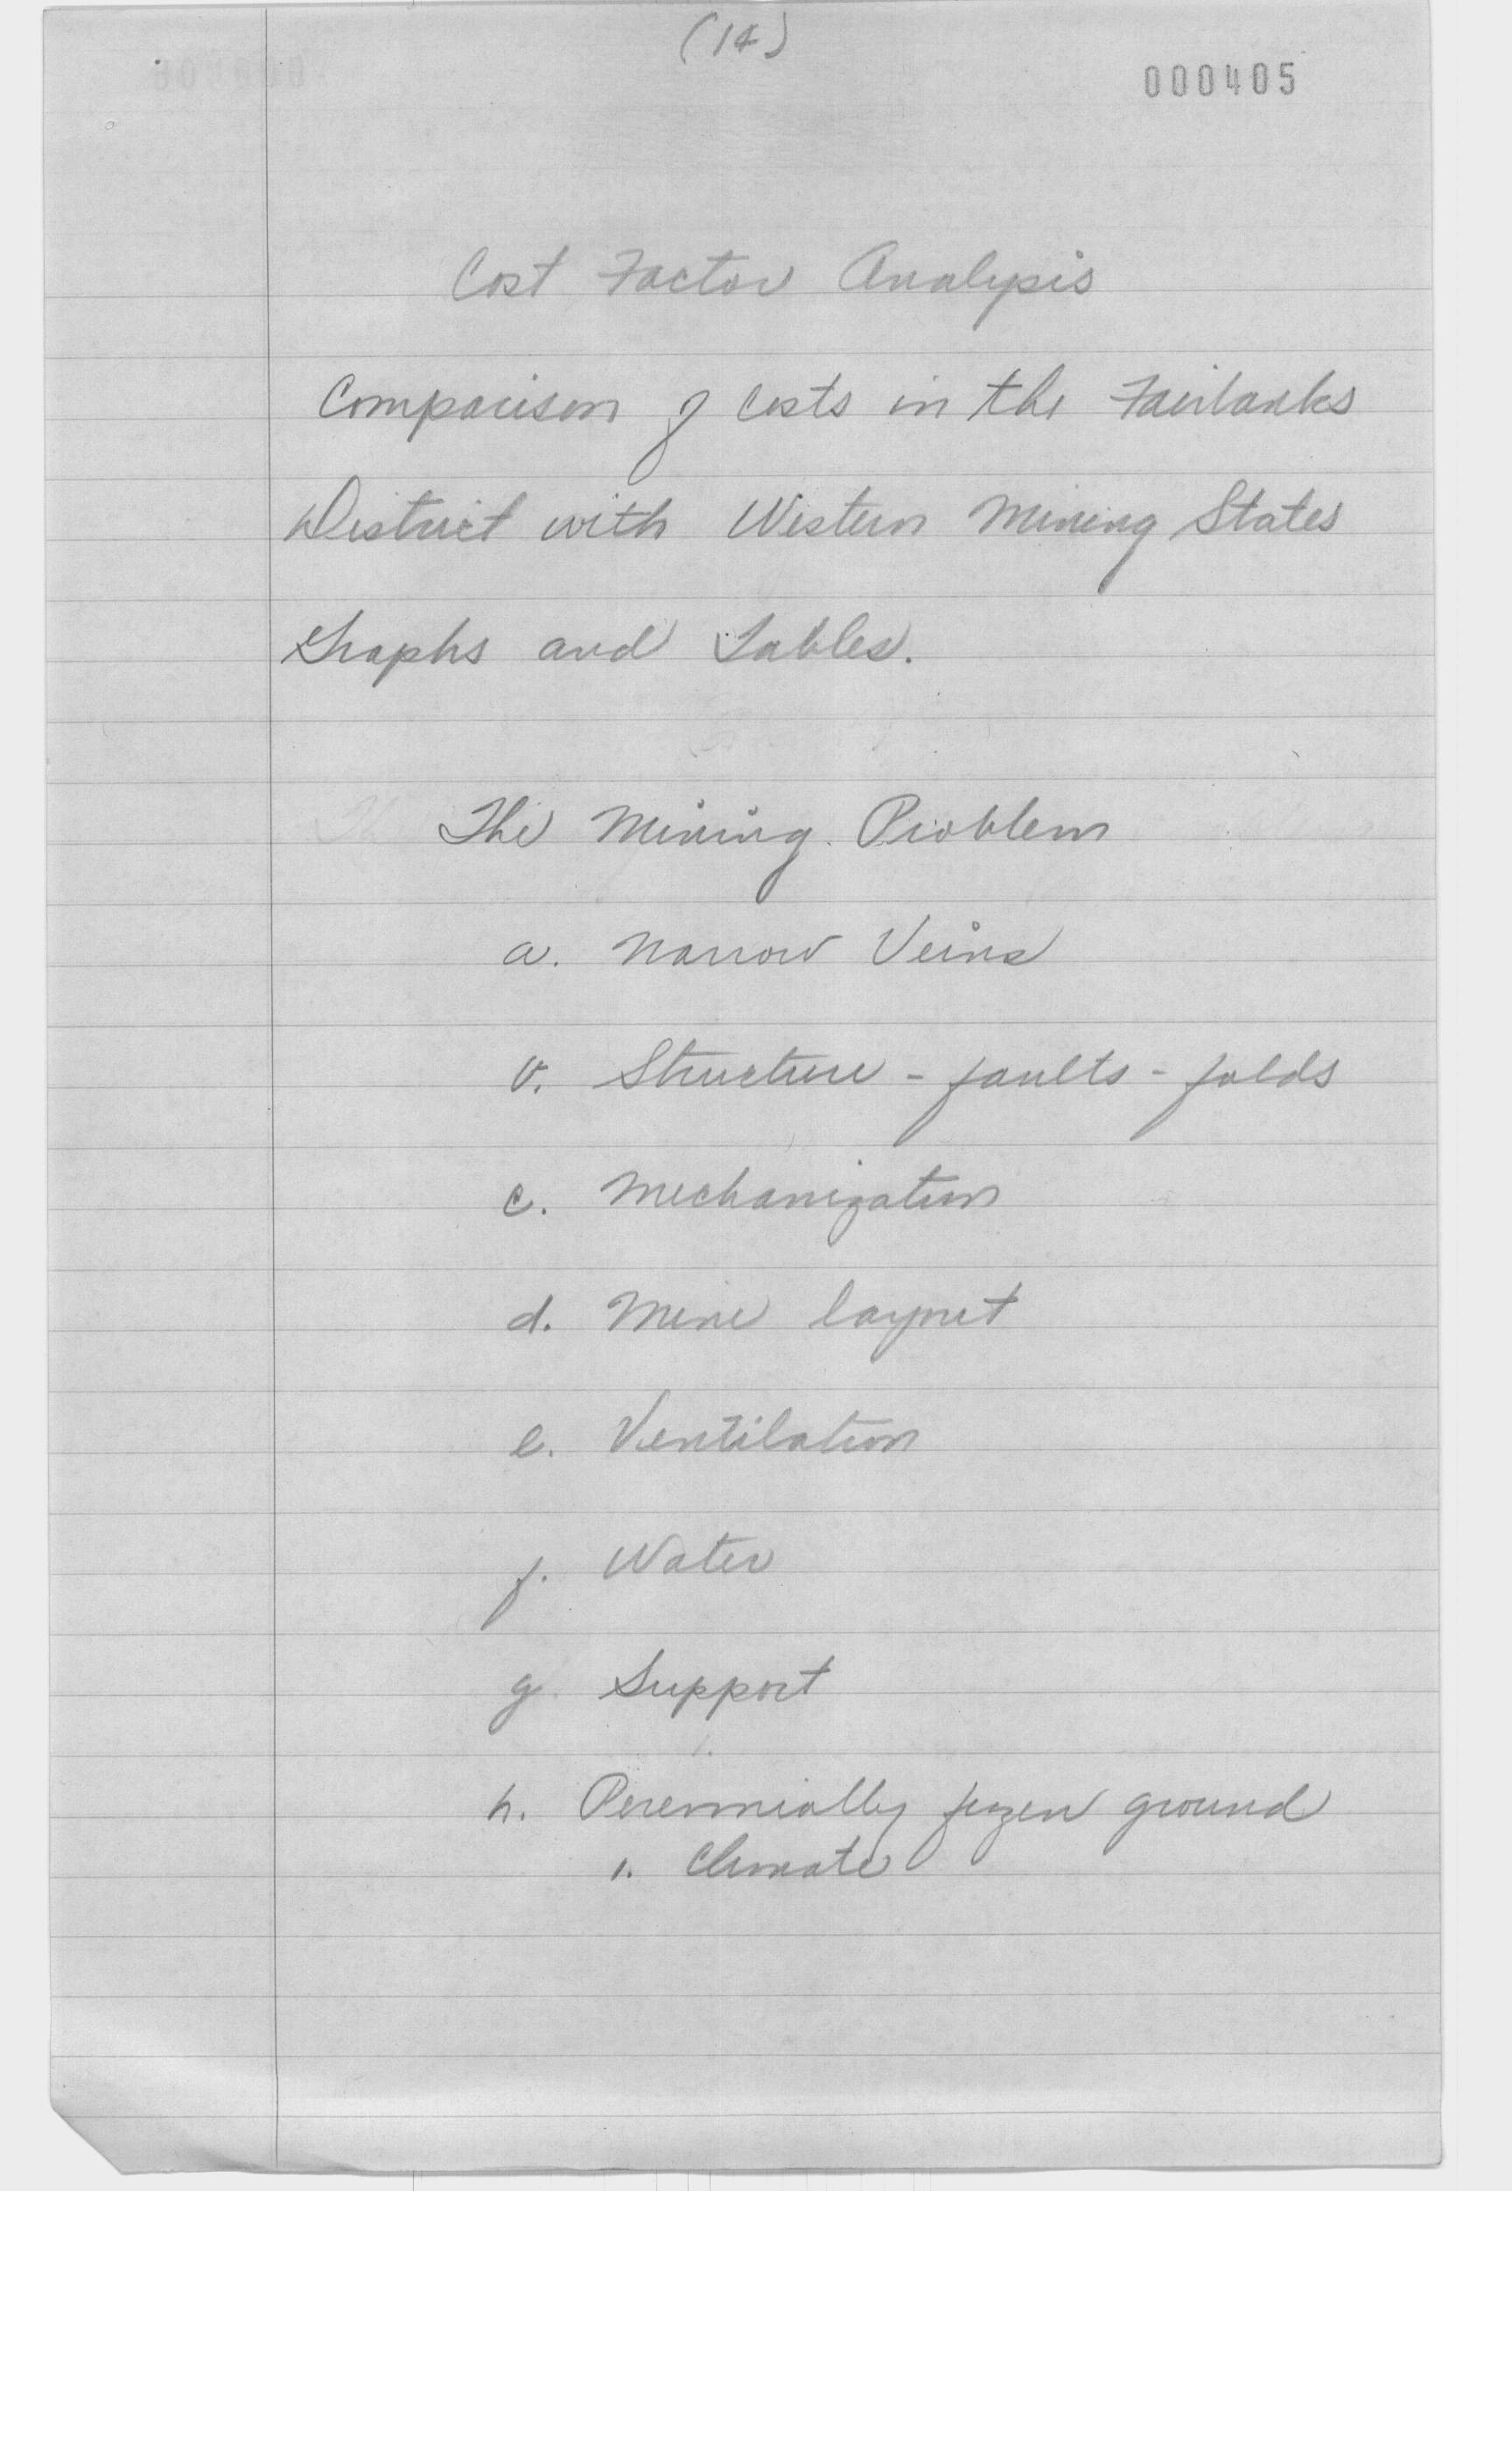 (14)
000405
Cost Factor Analysis
Comparison of costs in the Fairbanks
District with Western Mining States
Graphs and Tables.
The Mining Problem
a. Narrow Veins
b. Structure - faults - folds
c. Mechanization
d. Mine layout
e. Ventilation
f. Water
g. Support
h. Perennially frozen ground
1. Climate